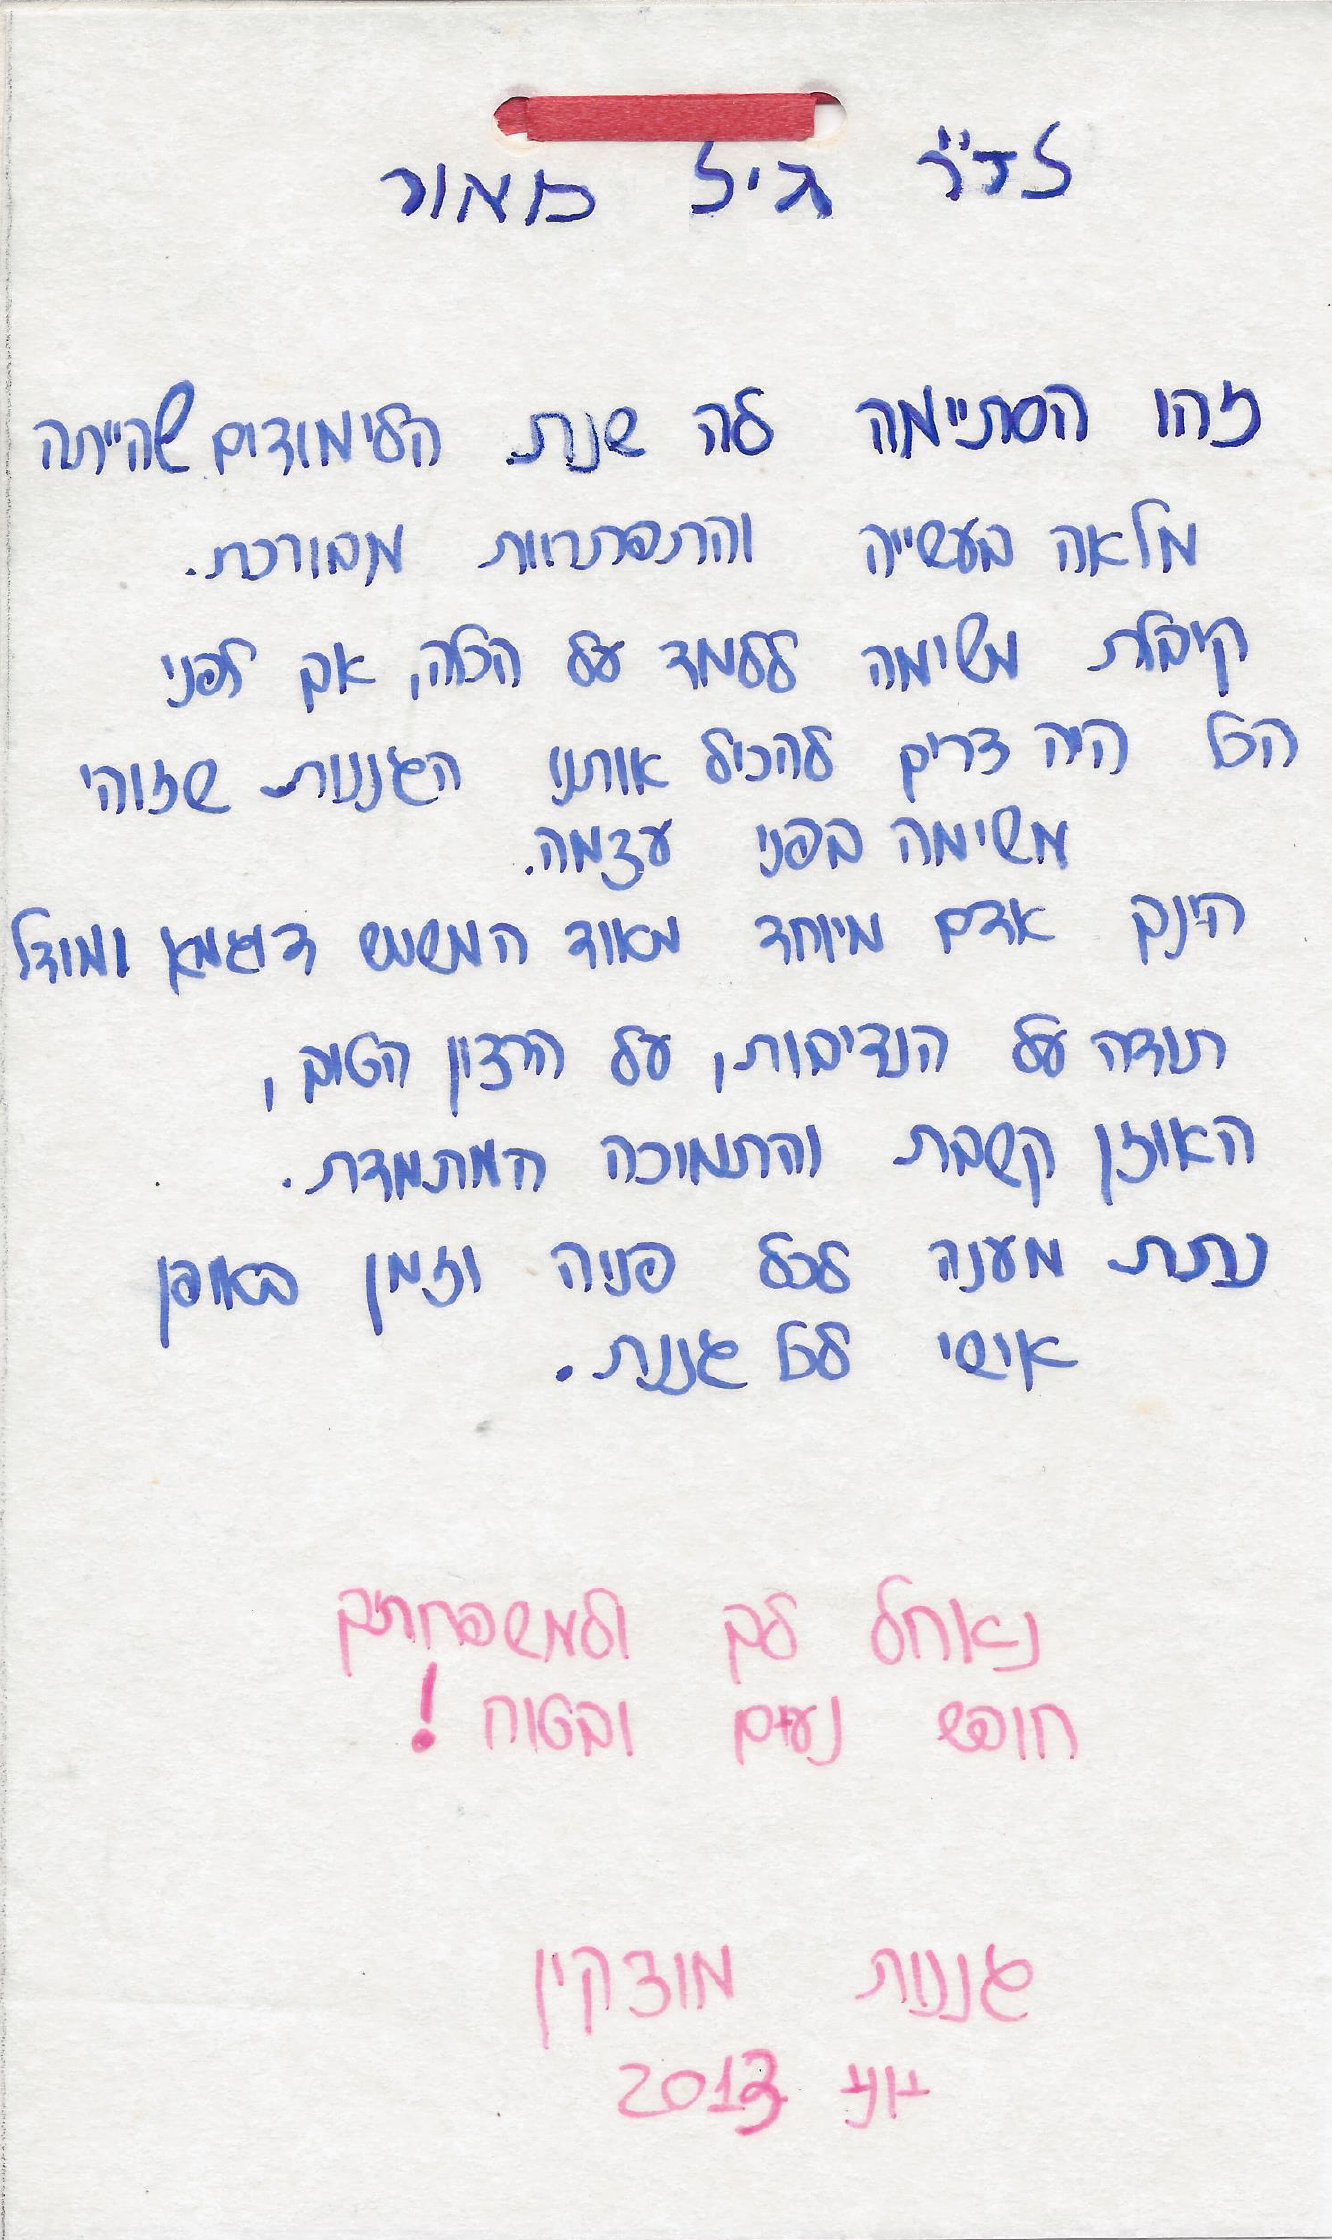 לד"ר גיל מאור
זהו הסתיימה לה שנת הלימודים שהייתה
מלאה בעשייה והתפתחות מבורכת.
קיבלת משימה ללמד על הכלה, אך לפני
הכל היה צריך להכיל אותנו הגננות שזוהי
משימה בפני עצמה.
הינך אדם מיוחד מאוד המשמש דוגמא ומודל
תודה על הנדיבות, על הרצון הטוב,
האוזן קשבת והתמיכה המתמדת.
נתת מענה לכל פניה וזמן באופן
אישי לכל גננת.
נאחל לך ולמשפחתך
חופש נעים ובטוח!
גננות מוצקין
יוני 2013